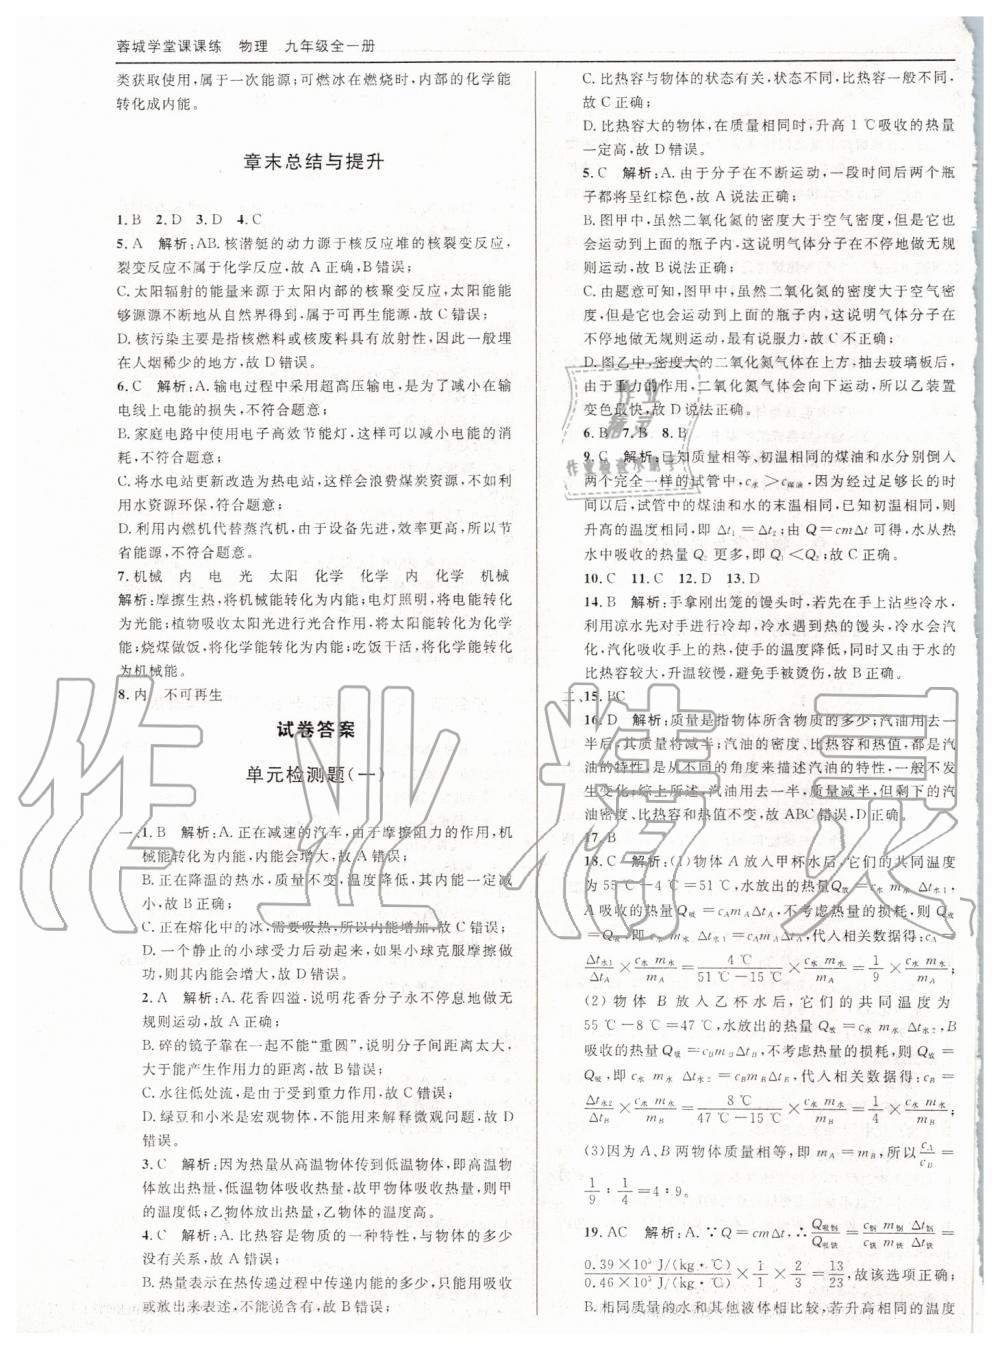 蓉城学堂课课练 物理 九年级全一册
类获取使用,属于一次能源;可燃冰在燃烧时,内部的化学能
转化成内能。
章末总结与提升
1. B 2. D 3. D 4. C
5. A 解析:AB. 核潜艇的动力源于核反应堆的核裂变反应,
裂变反应不属于化学反应,故 A 正确,B 错误;
C. 太阳辐射的能量来源于太阳内部的核聚变反应,能够
能够源源不断地从自然界得到,属于可再生能源,故 C 错误;
D. 核污染主要是指核燃料或核废料具有放射性,因此一般埋
在人烟稀少的地方,故 D 错误。
6. C 解析:A. 输电过程中采用超高压输电,是为了减小在输
电线上电能的损失,不符合题意;
B. 家庭电路中使用电子高效节能灯,这样可以减小电能的消
耗,不符合题意;
C. 将水电站更新改造为热电站,这样会浪费煤炭资源,不如利
用水资源环保,符合题意;
D. 利用内燃机代替蒸汽机,由于设备先进,效率更高,所以可
节省能源,不符合题意。
7. 机械 内 电 光 太阳 化学 化学 内 化学 机械
解析:摩擦生热,将机械能转化为内能;电灯照明,将电能转化
为光能;植物吸收太阳光进行光合作用,将太阳能转化为化学
能;烧煤做饭,将化学能转化为内能;吃饭干活,将化学能转化
为机械能。
8. 内 不可再生
试卷答案
单元检测题(一)
一、1. B 解析:A. 正在减速的汽车,由于摩擦阻力的作用,机
械能转化为内能,内能会增大,故 A 错误;
B. 正在降温的热水,质量不变,温度降低,其内能一定减
小,故 B 正确;
C. 正在熔化中的冰,需要吸热,所以内能增加,故 C 错误;
D. 一个静止的小球受力后动起来,如果小球克服摩擦做
功,其内能会增大,故 D 错误。
2. A 解析:A. 花香四溢,说明花香分子永不停息地做无
规则运动,故 A 正确;
B. 碎的镜子靠在一起不能“重圆”,说明分子间距离太大,
大于能产生作用力的距离,故 B 错误;
C. 水往低处流,是由于受到重力作用,故 C 错误;
D. 绿豆和小米是宏观物体,不能用来解释微观问题,故 D
错误。
3. C 解析:因为热量从高温物体传到低温物体,即高温物
体放出热量,低温物体吸收热量,故甲物体吸收热量,则甲
的温度低;乙物体放出热量,乙物体的温度高。
4. C 解析:A. 比热容是物质的一种特性,与物体的多少
没有关系,故 A 错误;
B. 热量表示在热传递过程中传递内能的多少,只能用吸收
或放出来表述,不能说含有,故 B 错误;
C. 比热容与物体的状态有关,状态不同,比热容一般不同,
故 C 正确;
D. 比热容大的物体,在质量相同时,升高 1 ℃ 吸收的热量
一定高,故 D 错误。
5. C 解析:A. 由于分子在不断运动,一段时间后两个瓶
子都将呈红棕色,故 A 说法正确;
B. 图甲中,虽然二氧化氮的密度大于空气密度,但是它也
会运动到上面的瓶子内,这说明气体分子在不停地做无规
则运动,故 B 说法正确;
C. 由题意可知,图甲中,虽然二氧化氮的密度大于空气密
度,但是它也会运动到上面的瓶子内,这说明气体分子在
不停地做无规则运动,最有说服力,故 C 说法不正确;
D. 图乙中,密度大的二氧化氮气体在上方,抽去玻璃板后,
由于重力的作用,二氧化氮气体会向下运动,所以乙装置
变色最快,故 D 说法正确。
6. B 7. B 8. B
9. C 解析:已知质量相等、初温相同的煤油和水分别倒人
两个完全一样的试管中,c水>c煤油,因为经过足够长的时
间以后,试管中的煤油和水的末温相同,已知初温相同,则
升高的温度相同,即 Δt1=Δt2;由 Q=cmΔt 可得,水从热
水中吸收的热量 Q2 更多,即 Q1<Q2,故 C 正确。
10. C 11. C 12. D 13. D
14. B 解析:手拿刚出笼的馒头时,若先在手上沾些冷水,
利用凉水先对手进行冷却,冷水遇到热的馒头,冷水会汽
化,汽化吸收手上的热,使手的温度降低,同时,因为水的
比热容较大,升温较慢,避免手被烫伤,故 B 正确。
二、15. BC
16. D 解析:质量是指物体所含物质的多少;汽油用去一
半后,其质量将减半;汽油的密度、比热容和热值,都是汽
油的特性,是从不同的角度描述汽油的特性,一般不会
发生变化;综上所述,汽油用去一半,质量减半,但剩下的汽
油密度、比热容和热值不变,故 ABC 错误,D 正确。
17. B
18. C 解析:(1)物体 A 放入甲杯水后,它们的共同温度
为 55 ℃-4 ℃=51 ℃,水放出的热量 Q放=c水 m水 Δt水1,
A 吸收的热量 Q吸=cAmAΔtA,不考虑热量的损耗,则 Q吸
=Q放,即 c水 m水 Δt水1=cAmAΔtA,代人相关数据得:cA=
Δt水1/ΔtA×c水 m水/mA=4 ℃/(51 ℃-15 ℃)×c水 m水/mA=1/9×c水 m水/mA;
(2)物体 B 放入乙杯水后,它们的共同温度为
55 ℃-8 ℃=47 ℃,水放出的热量 Q放=c水 m水 Δt水2,B
吸收的热量 Q吸=cBmBΔtB,不考虑热量的损耗,则 Q吸=
Q放,即 c水 m水 Δt水2=cBmBΔtB,代入相关数据得:cB=
Δt水2/ΔtB×c水 m水/mB=8 ℃/(47 ℃-15 ℃)×c水 m水/mB=1/4×c水 m水/mB;
(3)因为 A、B 两物体质量相等,即 mA=mB,所以cA/cB=
1/9:1/4=4:9。
19. AC 解析:A. ∵Q=cmΔt,∴Q吸铜/Q吸铁=c铜 m铜 Δt铜/c铁 m铁 Δt铁=
0.39×10³ J/(kg·℃)/0.46×10³ J/(kg·℃)×1/2×2/3=13/23,故该选项正确;
B. 相同质量的水和其他液体相比较,若升高相同的温度
作业精灵
作业检查小助手
作业精灵